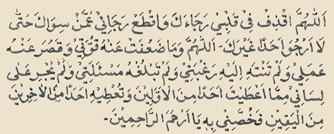 اَللّٰهُمَّ اقْذِفْ فِيْ قَلْبِيْ رَجَاءَكَ وَاقْطَعْ رَجَائِيْ عَمَّنْ سِوَاكَ حَتّٰى
لَا اَرْجُوَ اَحَدًا غَيْرَكَ - اَللّٰهُمَّ وَمَا ضَعُفَتْ عَنْهُ قُوَّتِيْ وَقَصُرَ عَنْهُ
عَمَلِيْ وَلَمْ تَنْتَهِ اِلَيْهِ رَغْبَتِيْ وَلَمْ تَبْلُغْهُ مَسْئَلَتِيْ وَلَمْ يَجْرِ عَلٰى
لِسَانِيْ مِمَّا اَعْطَيْتَ اَحَدًا مِنَ الْاَوَّلِيْنَ وَتُعْطِيْهِ اَحَدًا مِنَ الْاٰخِرِيْنَ
مِنَ الْيَقِيْنِ فَخُصَّنِيْ بِهِ يَا اَرْحَمَ الرَّاحِمِيْنَ -